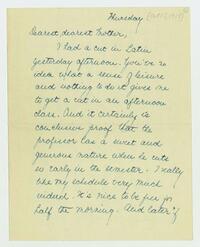 Thursday
Dearest dearest Mother,
I had a cut in Latin
yesterday afternoon. You've no
idea what a sense of leisure
and nothing to do it gives me
to get a cut in an afternoon
class. And it certainly is
conclusive proof that the
professor has a sweet and
generous nature when he cuts
so early in the semester. I really
like my schedule very much
indeed. It's nice to be free for
half the morning. And later if